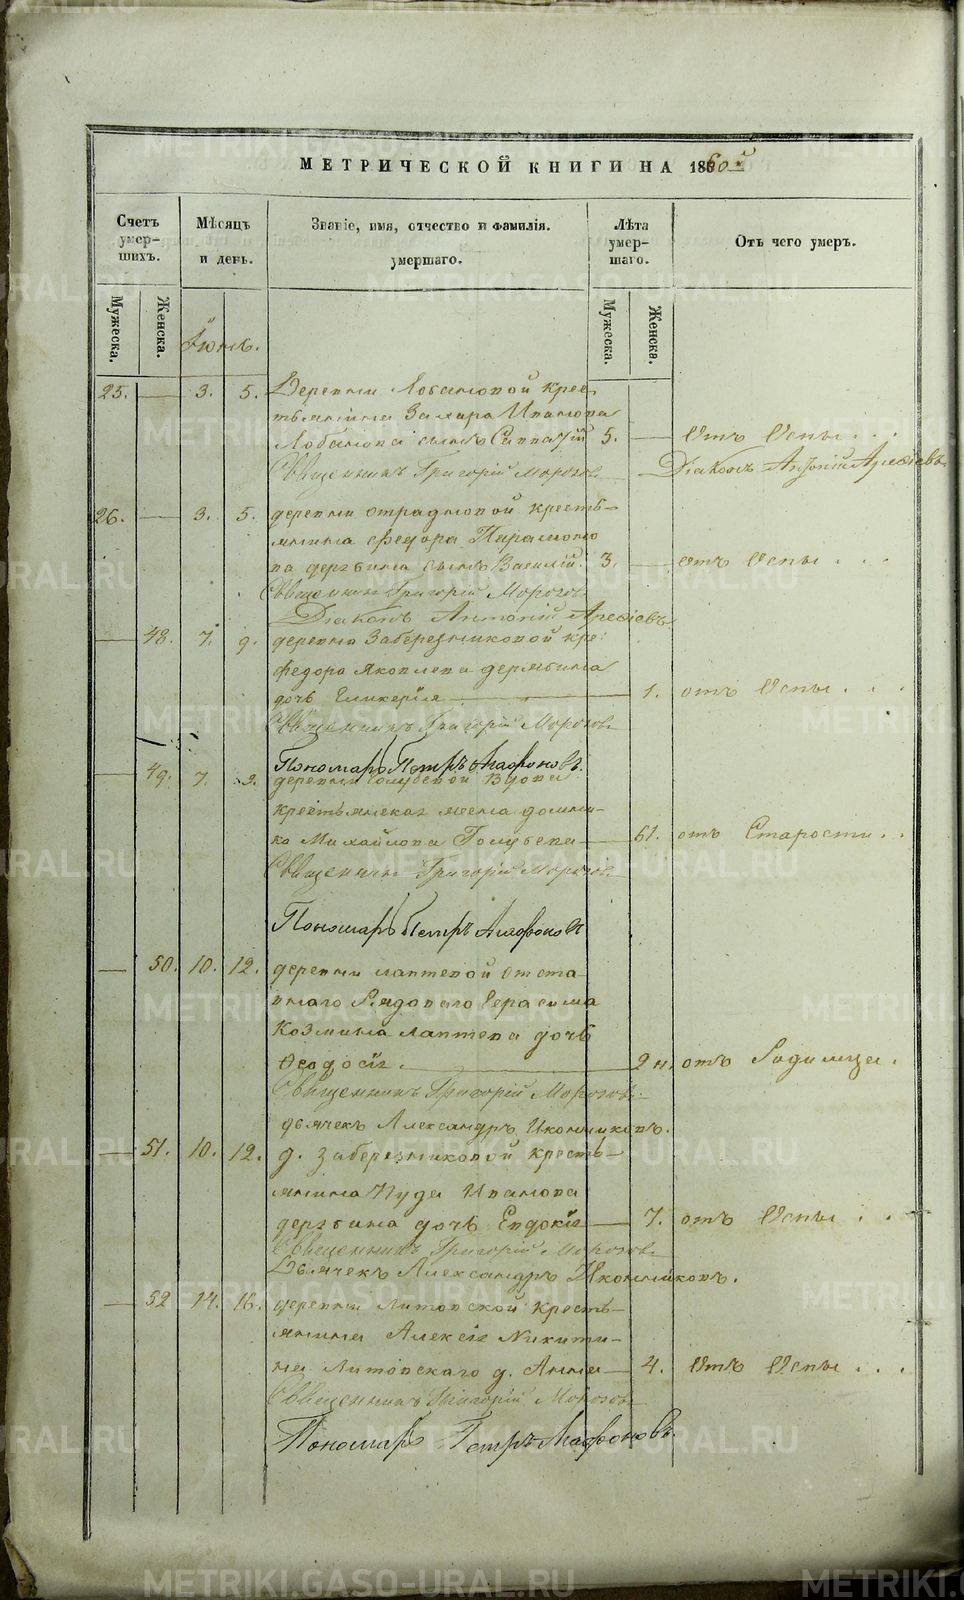 МЕТРИЧЕСКОЙ КНИГИ НА 1860й
Счетъ умер-шихъ.
Мѣсяцъ и день.
Званіе, имя, отчество и фамилія. умершаго.
Лѣта умер-шаго.
Отъ чего умеръ.
Мужеска.
Женска.
Мужеска.
Женска.
Іюнь.
25. — 3. 5. Деревни Лобановой крес-
тьянина Захара Иванова
Лобанова сынъ 5. — Отъ Оспы . . .
Священникъ Григорій Морозовъ Діаконъ Антоній
26. — 3. 5. деревни отрадновой кресть-
янина Федора Парамоно
ва дерябина сынъ Василій. 3. — отъ Оспы . . .
Священникъ Григорій Морозовъ
Діаконъ Антоній
— 48. 7. 9. деревни Заберезниковой кре:
Федора Яковлева дерябина
дочь Гликерія — 1. отъ Оспы . . .
Священникъ Григорій Морозовъ
Пономарь Петръ Агафоновъ.
— 49. 7. 9. деревни Голубевой Вдова
крестьянская жена домни-
ка Михайлова Голубева — 61. отъ Старости . .
Священникъ Григорій Морозовъ
Пономарь Петръ Агафоновъ
— 50. 10. 12. деревни лаптевой отста
внаго Рядоваго Герасима
Козмина лаптева дочь
Ѳеодосія. — 2 н. отъ Родимца .
Священникъ Григорій Морозовъ.
дьячекъ Александръ Иконниковъ.
— 51. 10. 12. д. заберезниковой кресть-
янина Нуда Иванова
дерябина дочь Евдокія — 7. отъ Оспы . . .
Священникъ Григорій Морозовъ
Дьячекъ Александръ Иконниковъ.
— 52 14. 16. деревни Литовской кресть-
янина Алексія Никити-
на Литовскаго д. Анна — 4. Отъ Оспы . . .
Священникъ Григорій Морозовъ
Пономарь Петръ Агафоновъ.
METRIKI.GASO-URAL.RU